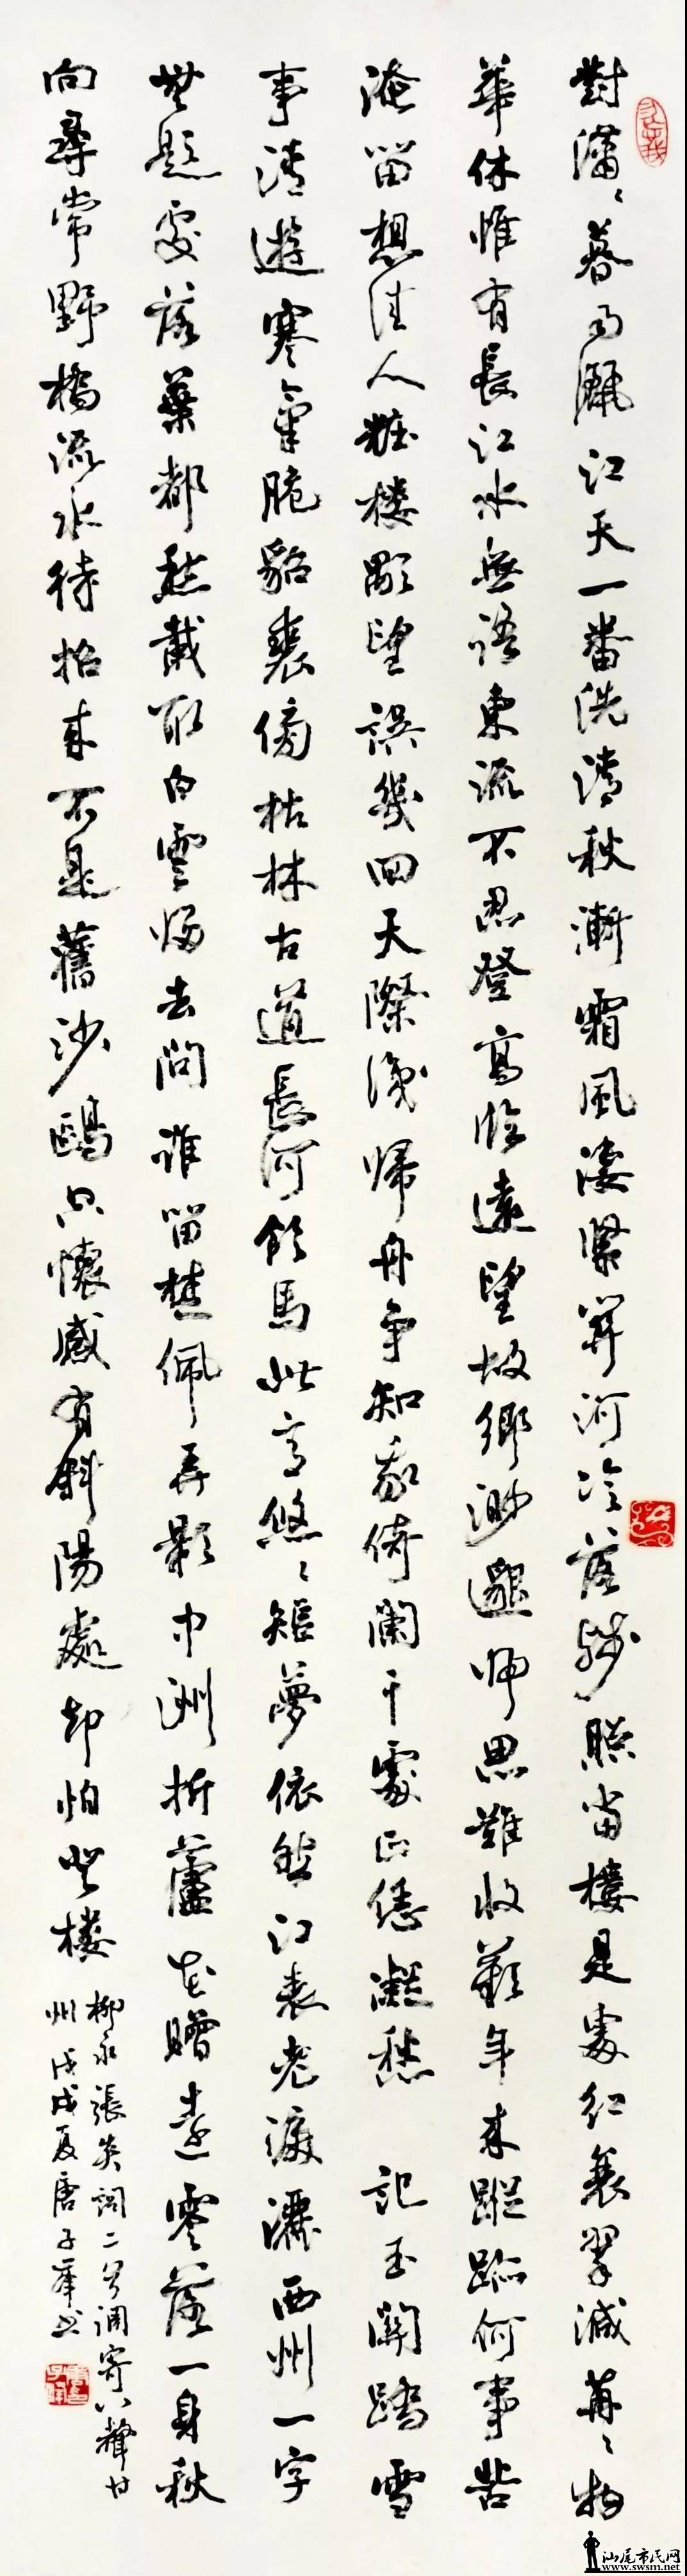 對瀟〻暮雨灑江天一番洗清秋漸霜風淒緊關河冷落殘照當樓是處紅衰翠減苒〻物
華休惟有長江水無語東流不忍登高臨遠望故鄉渺邈歸思難收歎年來蹤跡何事苦
淹留想佳人粧樓顒望誤幾回天際識歸舟爭知我倚闌干處正恁凝愁 記玉關踏雪
事清遊寒氣脆貂裘傍枯林古道長河飲馬此意悠〻短夢依然江表老淚灑西州一字
無題處落葉都愁載取白雲歸去問誰留楚佩弄影中洲折蘆花贈遠零落一身秋
向尋常野橋流水待招來不是舊沙鷗空懷感有斜陽處却怕登樓
柳永張炎詞二首調寄八聲甘
州戊戌夏唐子奉書
汕尾市民网
www.swsm.net